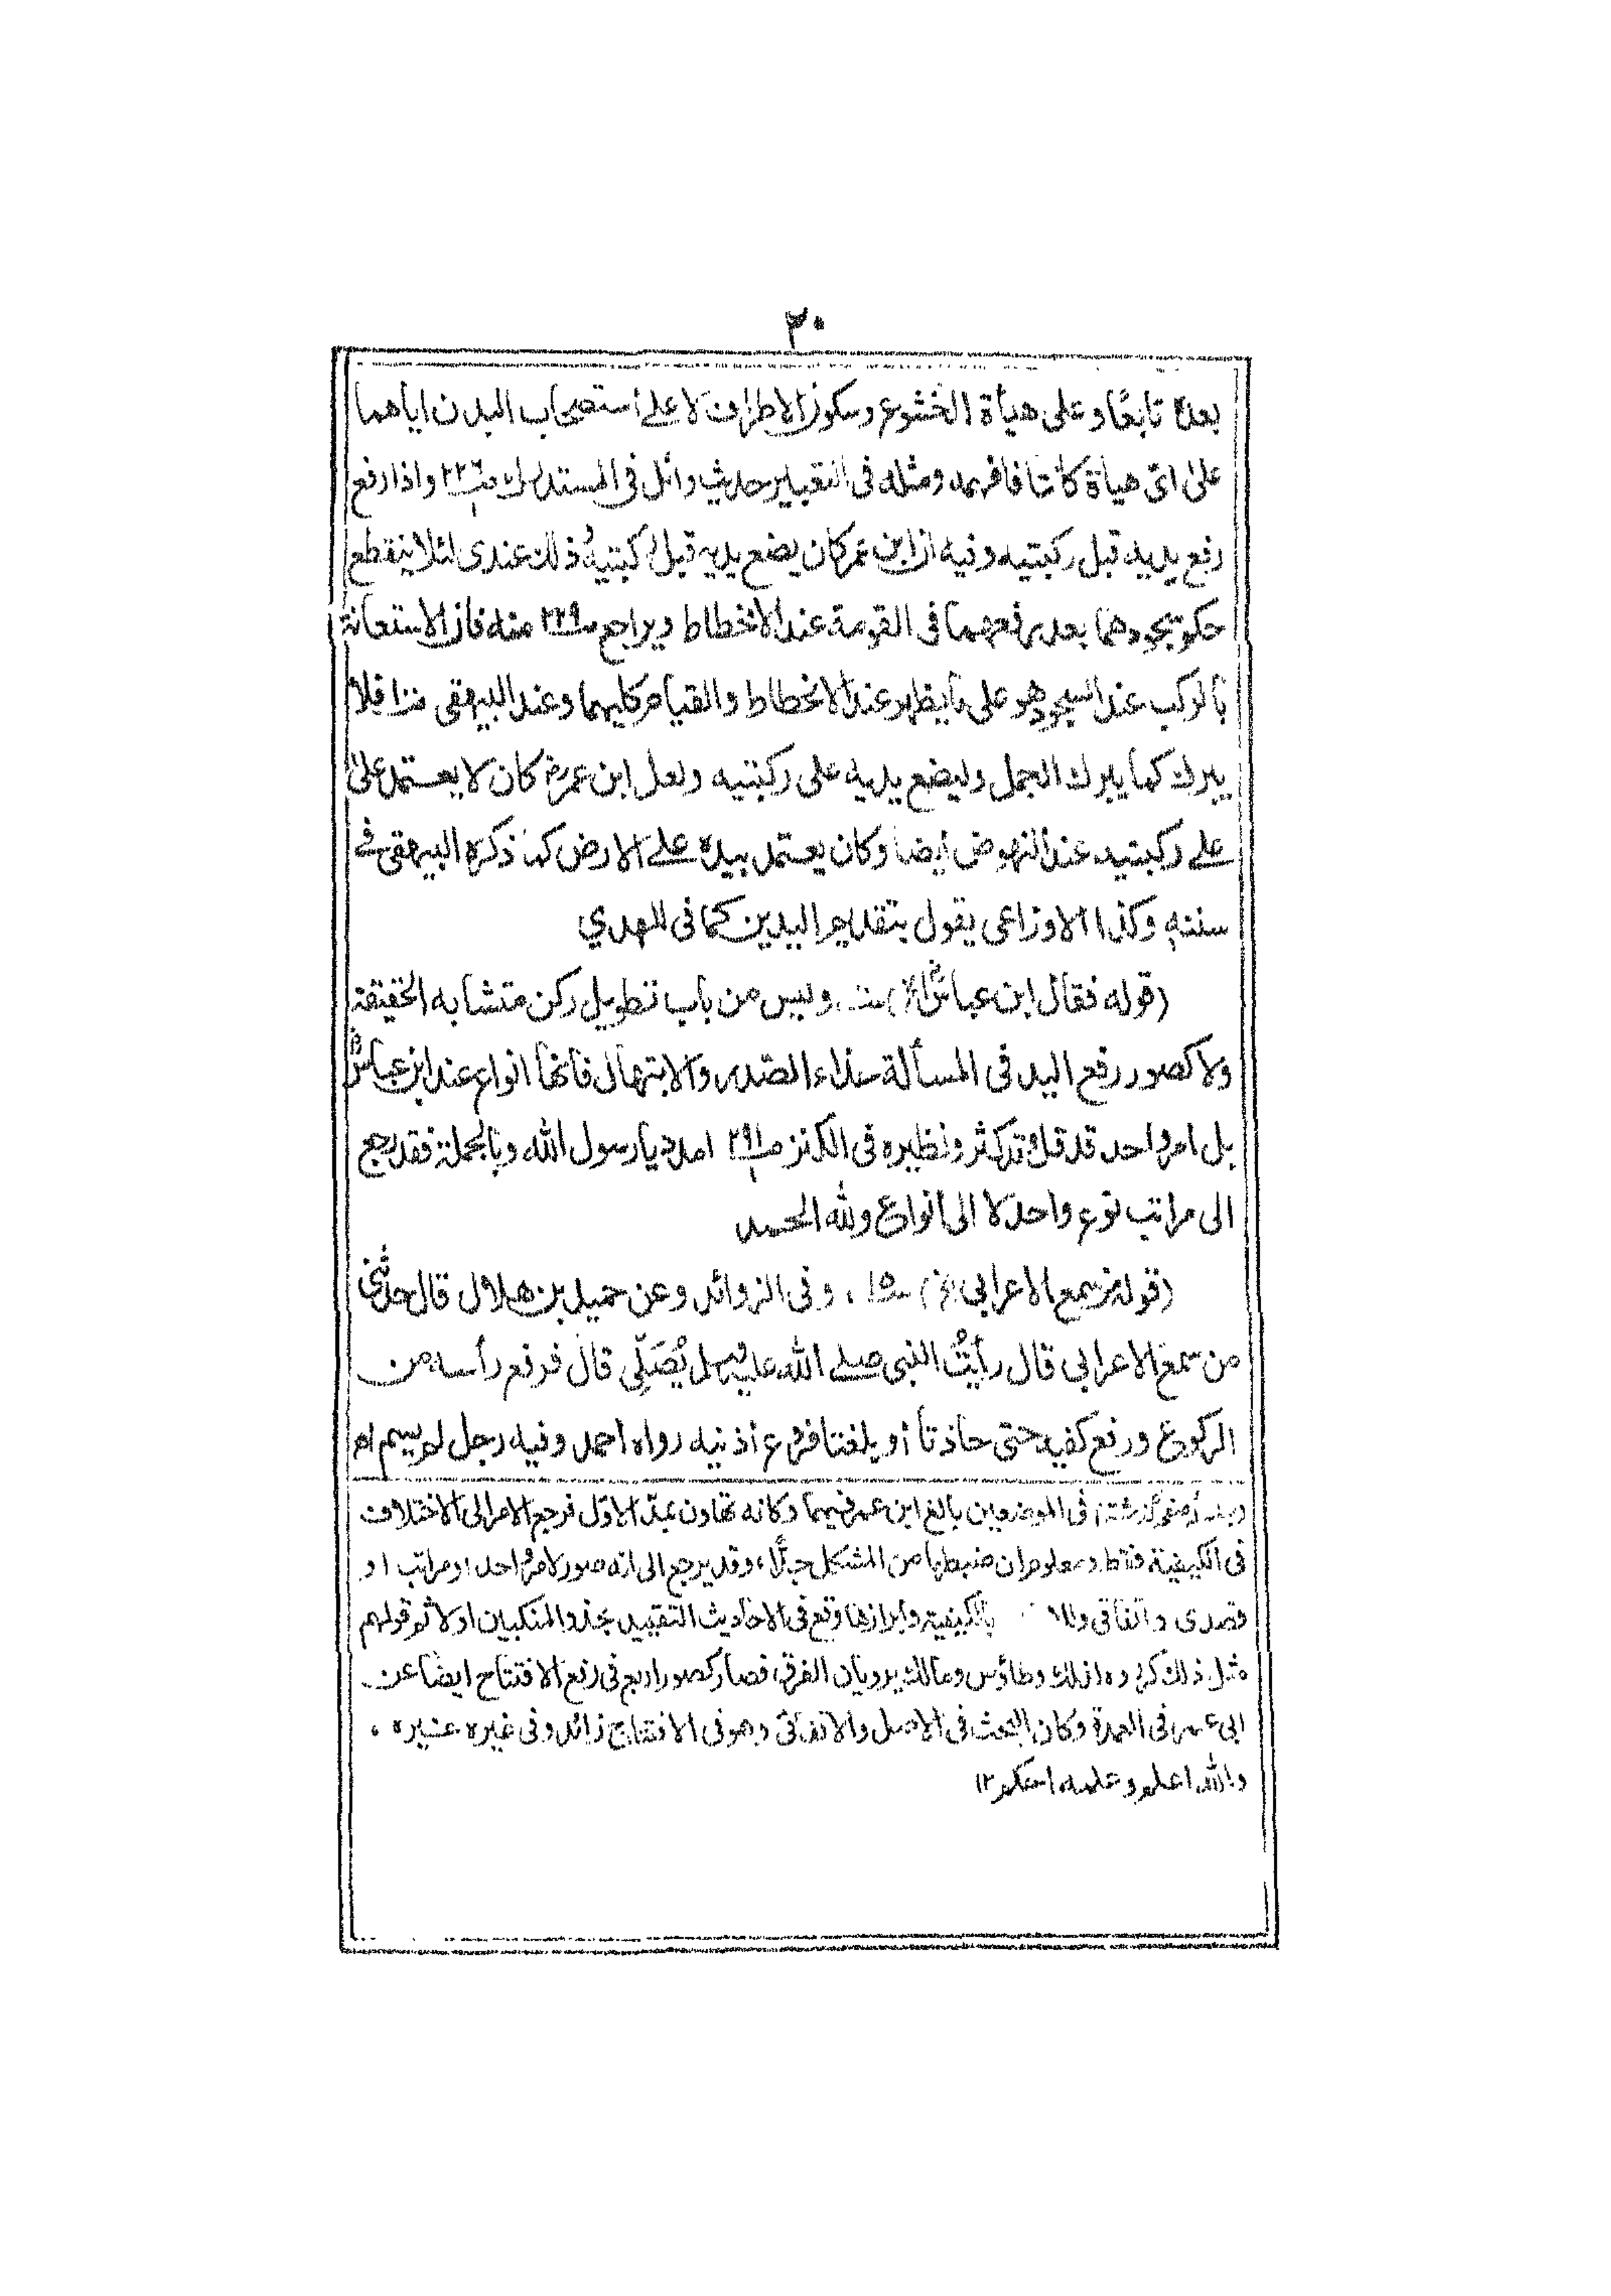 ٣٠
بعدُ تابعًا وعلى هيأة الخشوع وسكون الاطراف لا على استصحاب البدن اياهما
على اىّ هيأة كانتا فافهمه ومثله فى التعبير حديث وائل فى المستدرك ٢٢٦ واذا رفع
رفع يديه قبل ركبتيه وفيه ان ابن عمر كان يضع يديه قبل ركبتيه وذلك عندى لئلا ينقطع
حكم سجودهما بعد رفعهما فى القومة عند الانحطاط ويراجع ٢٢٩ منه فان الاستعانة
بالركب عند السجود هو على ما يظهر عند الانحطاط والقيام كليهما وعند البيهقى فلا
يبرك كما يبرك الجمل وليضع يديه على ركبتيه ولعل ابن عمرؓ كان لا يعتمد على
على ركبتيه عند النهوض ايضا وكان يعتمد بيده على الارض كما ذكره البيهقى فى
سننه وكذا الاوزاعى يقول بتقديم اليدين كما فى الهدي
(قوله فقال ابن عباسؓ الخ) وليس من باب تطويل ركن متشابه الحقيقة
ولا كصور رفع اليد فى المسألة حذاء الصدر والابتهال فانها انواع عند ابن عباسؓ
بل امر واحد قد قل وقد كثر ونظيره فى الكنز ٢٩١ امدد يا رسول الله وبالجملة فقد رجع
الى مراتب نوع واحد لا الى انواع ولله الحمد
(قوله من سمع الاعرابي الخ) ١٥، وفى الزوائد وعن حميد بن هلال قال حدثني
من سمع الاعرابي قال رأيتُ النبى صلى الله عليه وسلم يُصَلِّي قال فرفع رأسه من
الركوع ورفع كفيه حتى حاذتا أو بلغتا فروع أذنيه رواه احمد وفيه رجل لم يسم اه
صفحه گزشته) فى الموضعين بالغ ابن عمر فيهما وكانه تهاون بمدّ الاوّل فرجع الامر الى الاختلاف
فى الكيفية فقط ومعلوم ان ضبطها من المشكل جدًّا، وقد يرجع الى انه صور لامر واحد او مراتب او
قصدى واتفاقى بالكيفية وابرازها وقع فى الاحاديث التقييد بحذو المنكبين اولا ثم قولهم
مثل ذلك وطاؤس ومالك يرويان الفرق، فصار كصور اربع فى رفع الافتتاح ايضا عن
ابى عمر فى العمدة وكان البحث فى الاصل والاتفاقى وهو فى الافتتاح زائد وفى غيره عشيره ،
والله اعلم وعلمه احكم ١٢